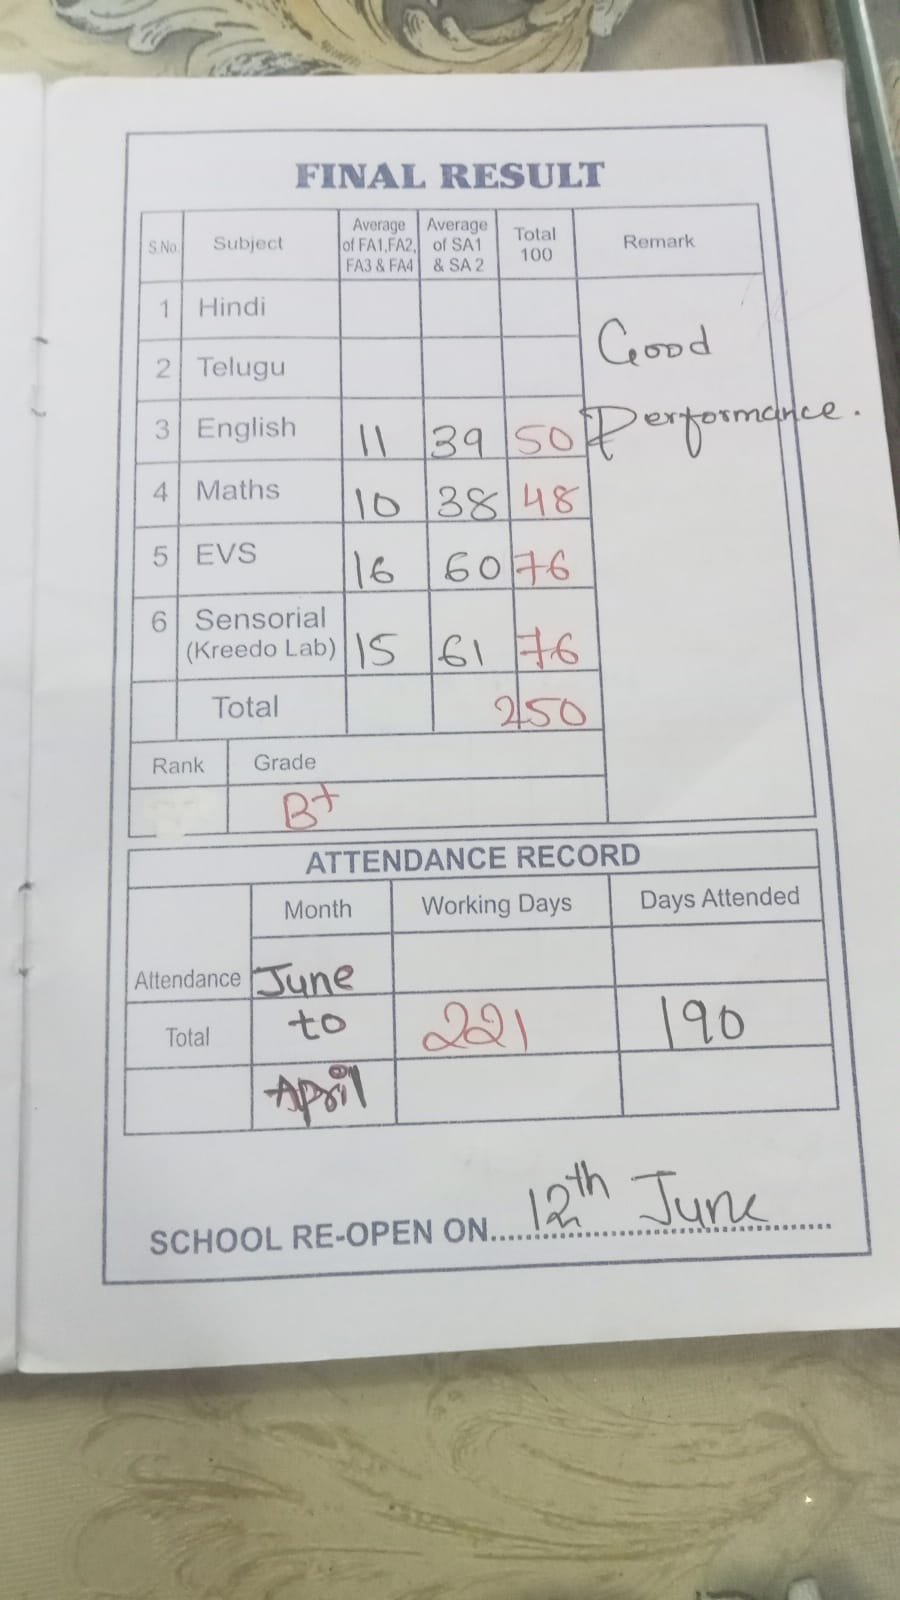 FINAL RESULT
S.No. Subject Average of FA1,FA2, FA3 & FA4 Average of SA1 & SA 2 Total 100 Remark
1 Hindi
2 Telugu
3 English 11 39 50
4 Maths 10 38 48
5 EVS 16 60 76
6 Sensorial (Kreedo Lab) 15 61 76
Total 250
Good
Performance.
Rank Grade
B+
ATTENDANCE RECORD
Month Working Days Days Attended
Attendance June
Total to 221 190
April
SCHOOL RE-OPEN ON 12th June